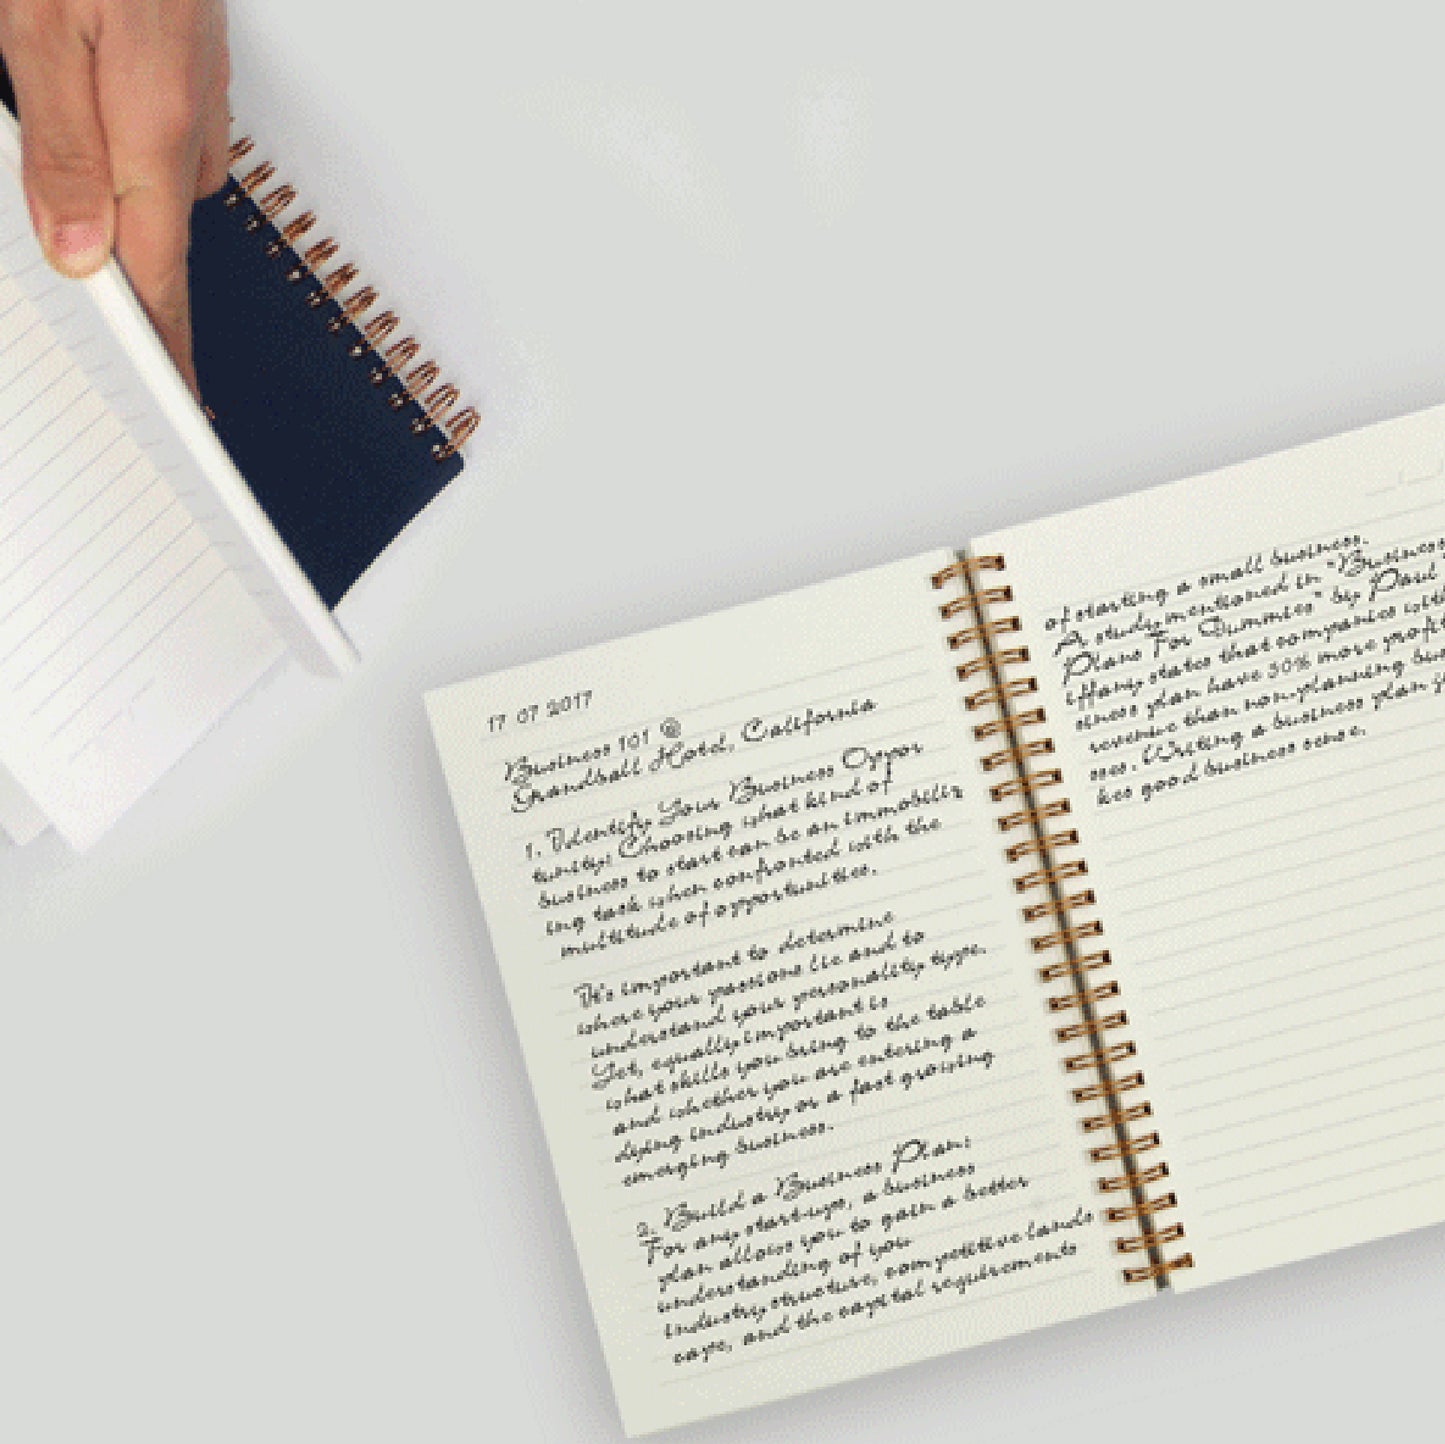 17 07 2017
Business 101 @
Grandball Hotel, California
1. Identify Your Business Oppor
tunity: Choosing what kind of
business to start can be an immobiliz
ing task when confronted with the
multitude of opportunities.
It's important to determine
where your passions lie and to
understand your personality type.
Yet, equally important is
what skills you bring to the table
and whether you are entering a
dying industry or a fast growing
emerging business.
2. Build a Business Plan:
For any start-ups, a business
plan allows you to gain a better
understanding of you
industry structure, competitive lands
cape, and the capital requirements
of starting a small business.
A study mentioned in "Business
Plans For Dummies" by Paul T
iffany states that companies with
siness plan have 50% more profit
revenue than non-planning bus
ses. Writing a business plan j
kes good business sense.